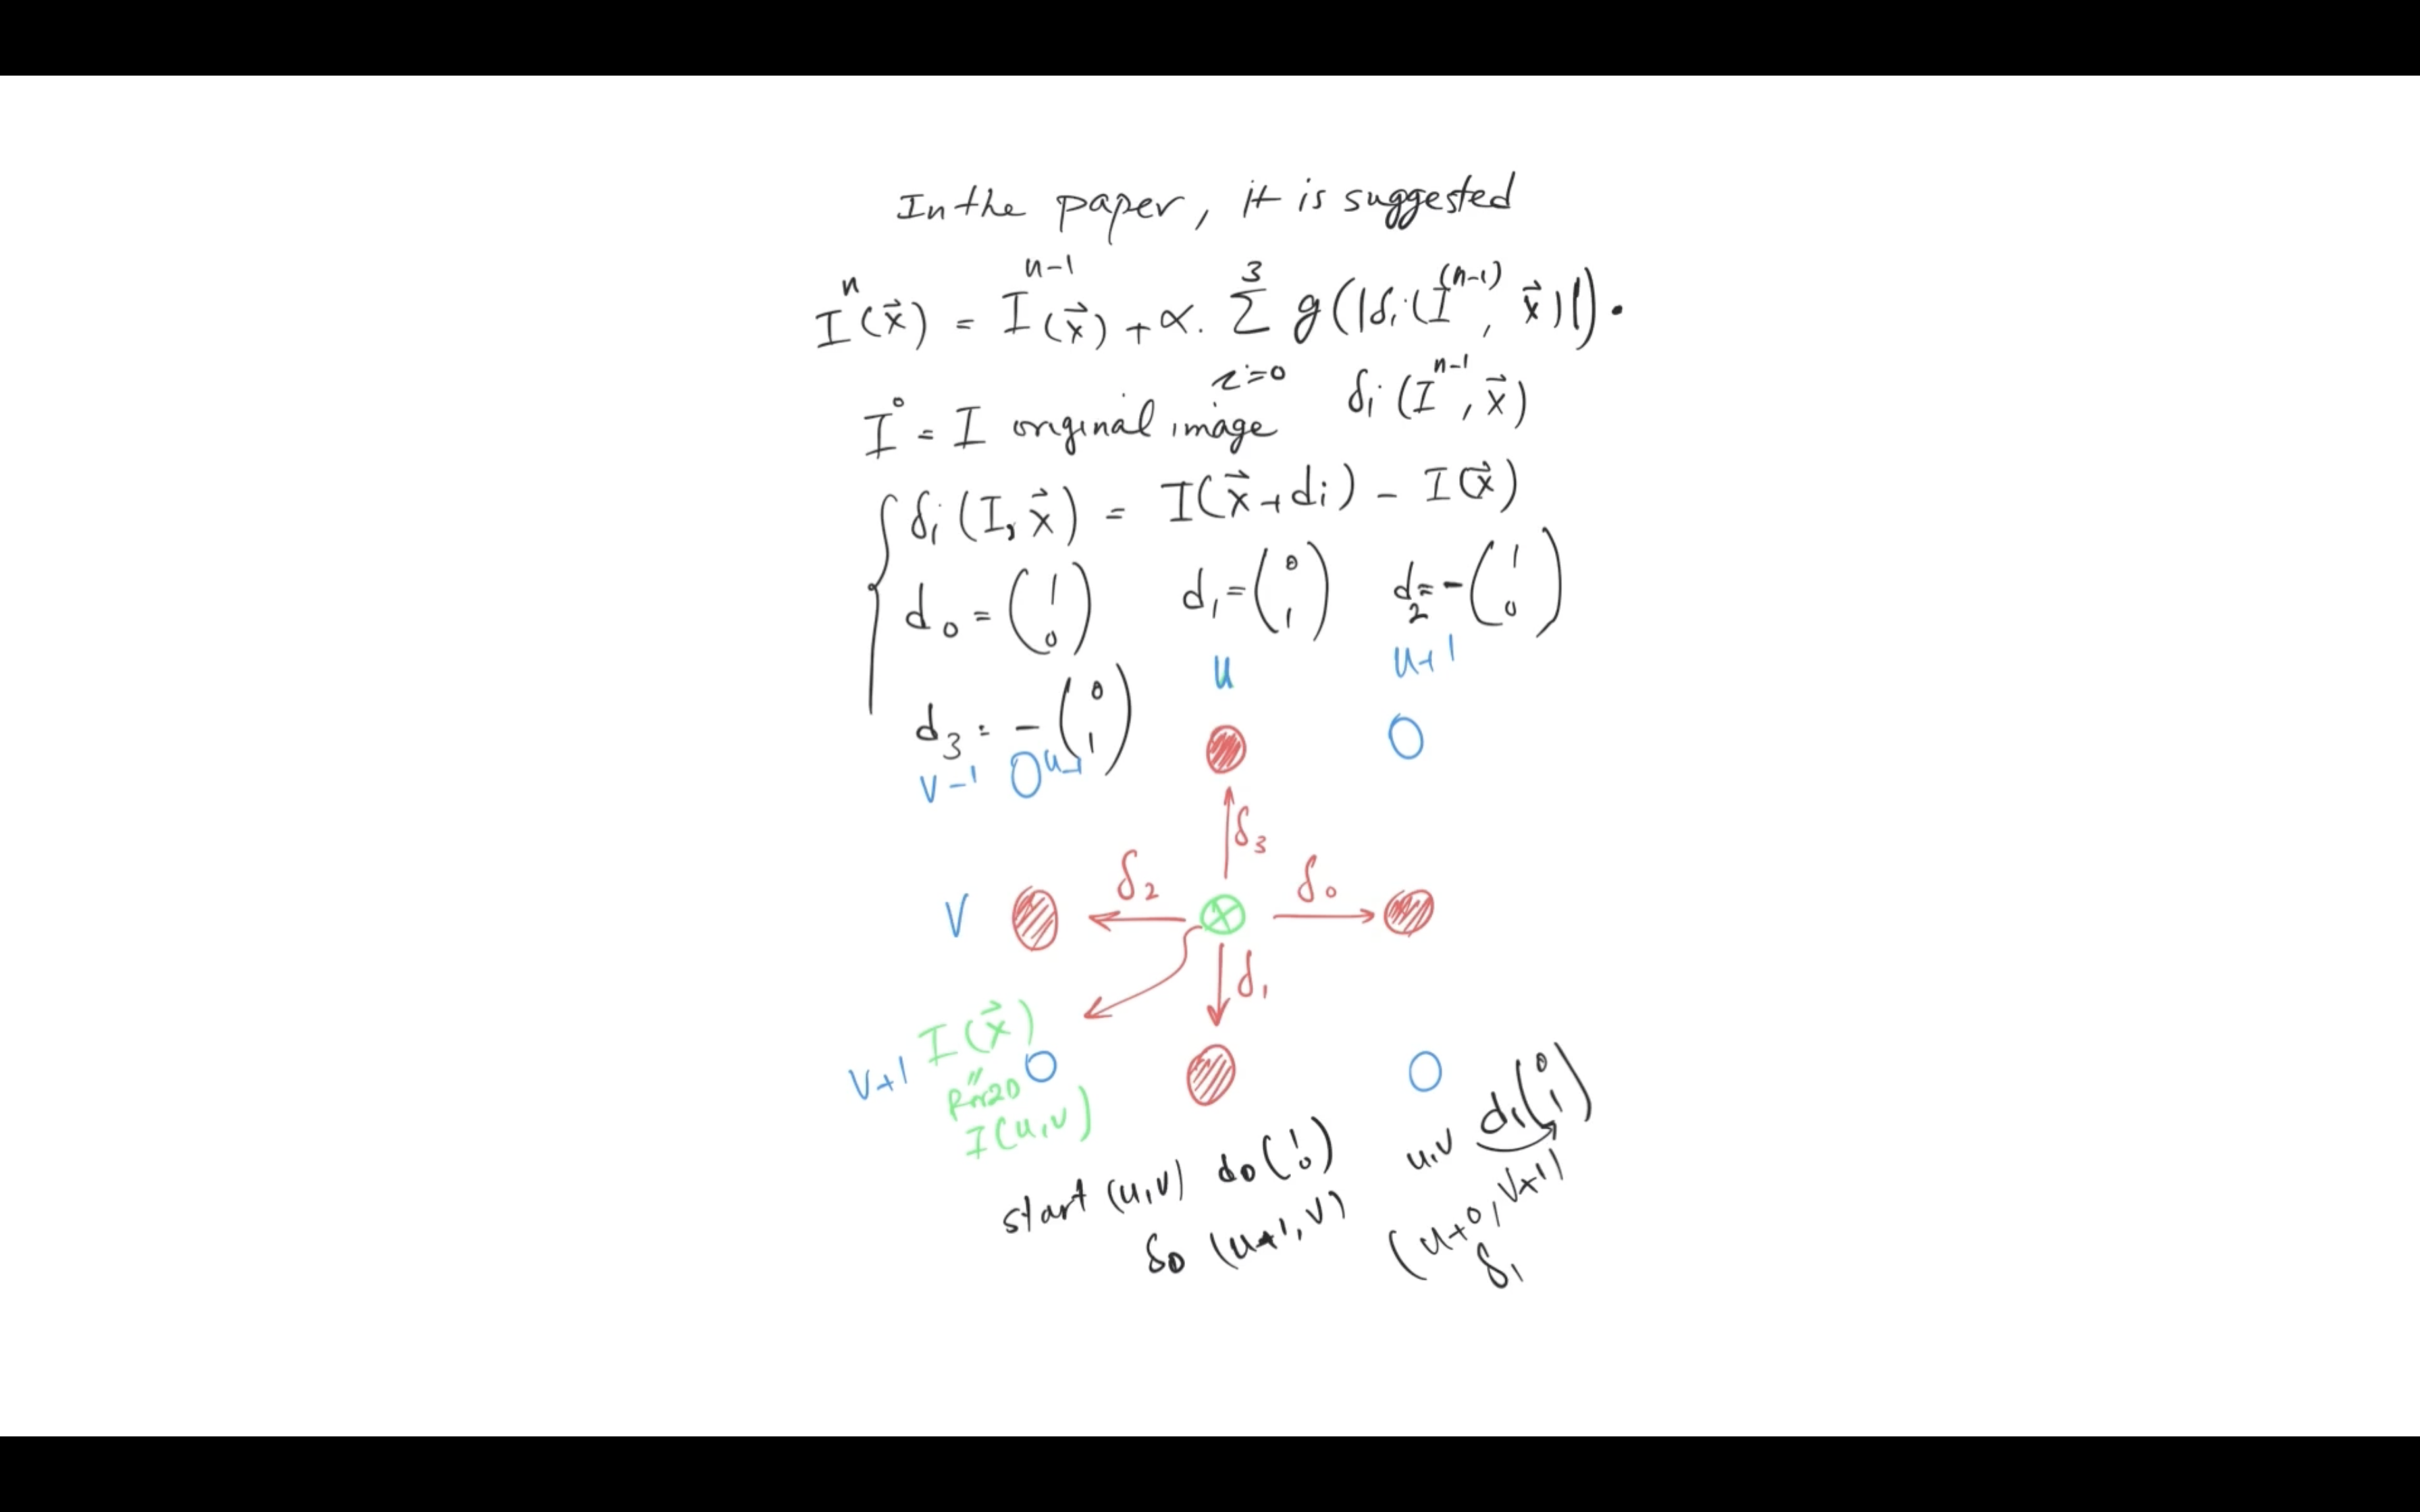 In the paper, it is suggested
Iⁿ(x⃗) = Iⁿ⁻¹(x⃗) + α. Σ³ᵢ₌₀ g(|δᵢ(I⁽ⁿ⁻¹⁾, x⃗)|).
δᵢ(Iⁿ⁻¹, x⃗)
I⁰ = I original image
δᵢ(I, x⃗) = I(x⃗+dᵢ) - I(x⃗)
d₀ = (1 0) d₁ = (0 1) d₂ = -(1 0)
d₃ = -(0 1)
u u+1
v-1 u-1
δ₃
δ₂ δ₀
v
δ₁
I(x⃗)
v+1
"
I(u,v)
start (u,v) d₀(1 0) u,v d₁(0 1)
δ₀ (u+1, v) (u+0, v+1)
δ₁